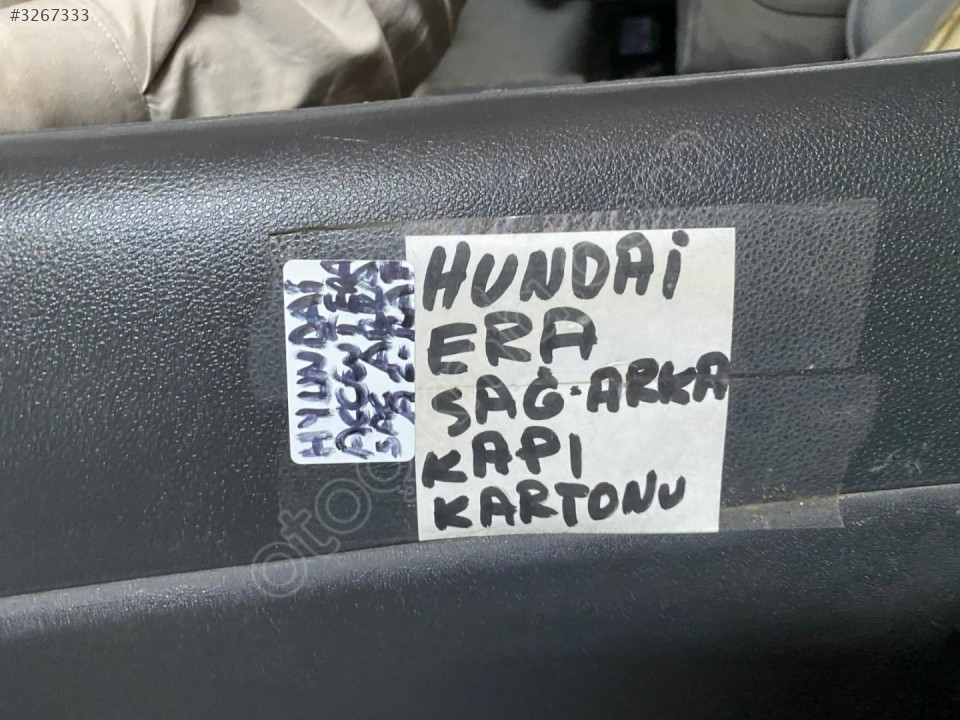 #3267333
HUNDAi
ERA
SAĞ·ARKA
KAPI
KARTONU
HYUNDAİ
ACCENT ERA
SAĞ ARKA